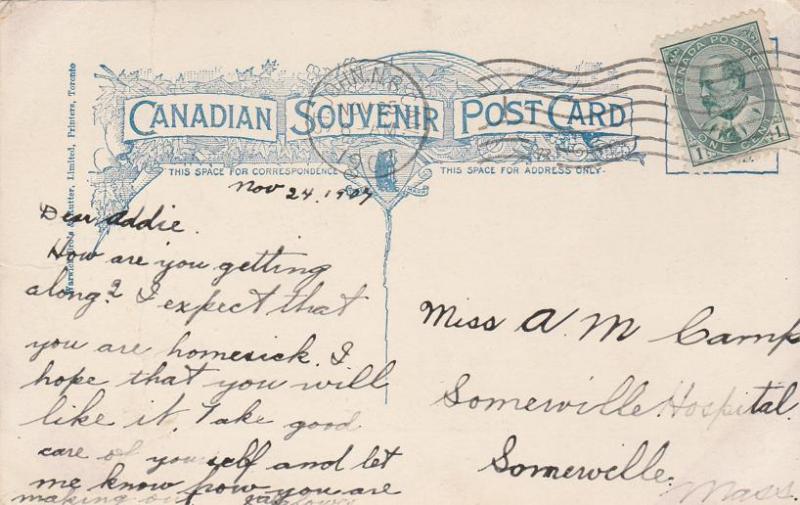 CANADIAN SOUVENIR POST CARD
THIS SPACE FOR CORRESPONDENCE
THIS SPACE FOR ADDRESS ONLY.
OHN, N.B.
NOV 25
190
CANADA POSTAGE
ONE CENT
1 1
Limited, Printers, Toronto
Nov 24, 1907
Dear Addie.
How are you getting
along? I expect that
you are homesick. I
hope that you will
like it. Take good
care of yourself and let
me know how you are
making
Miss A M Camp
Somerville Hospital.
Somerville.
Mass.